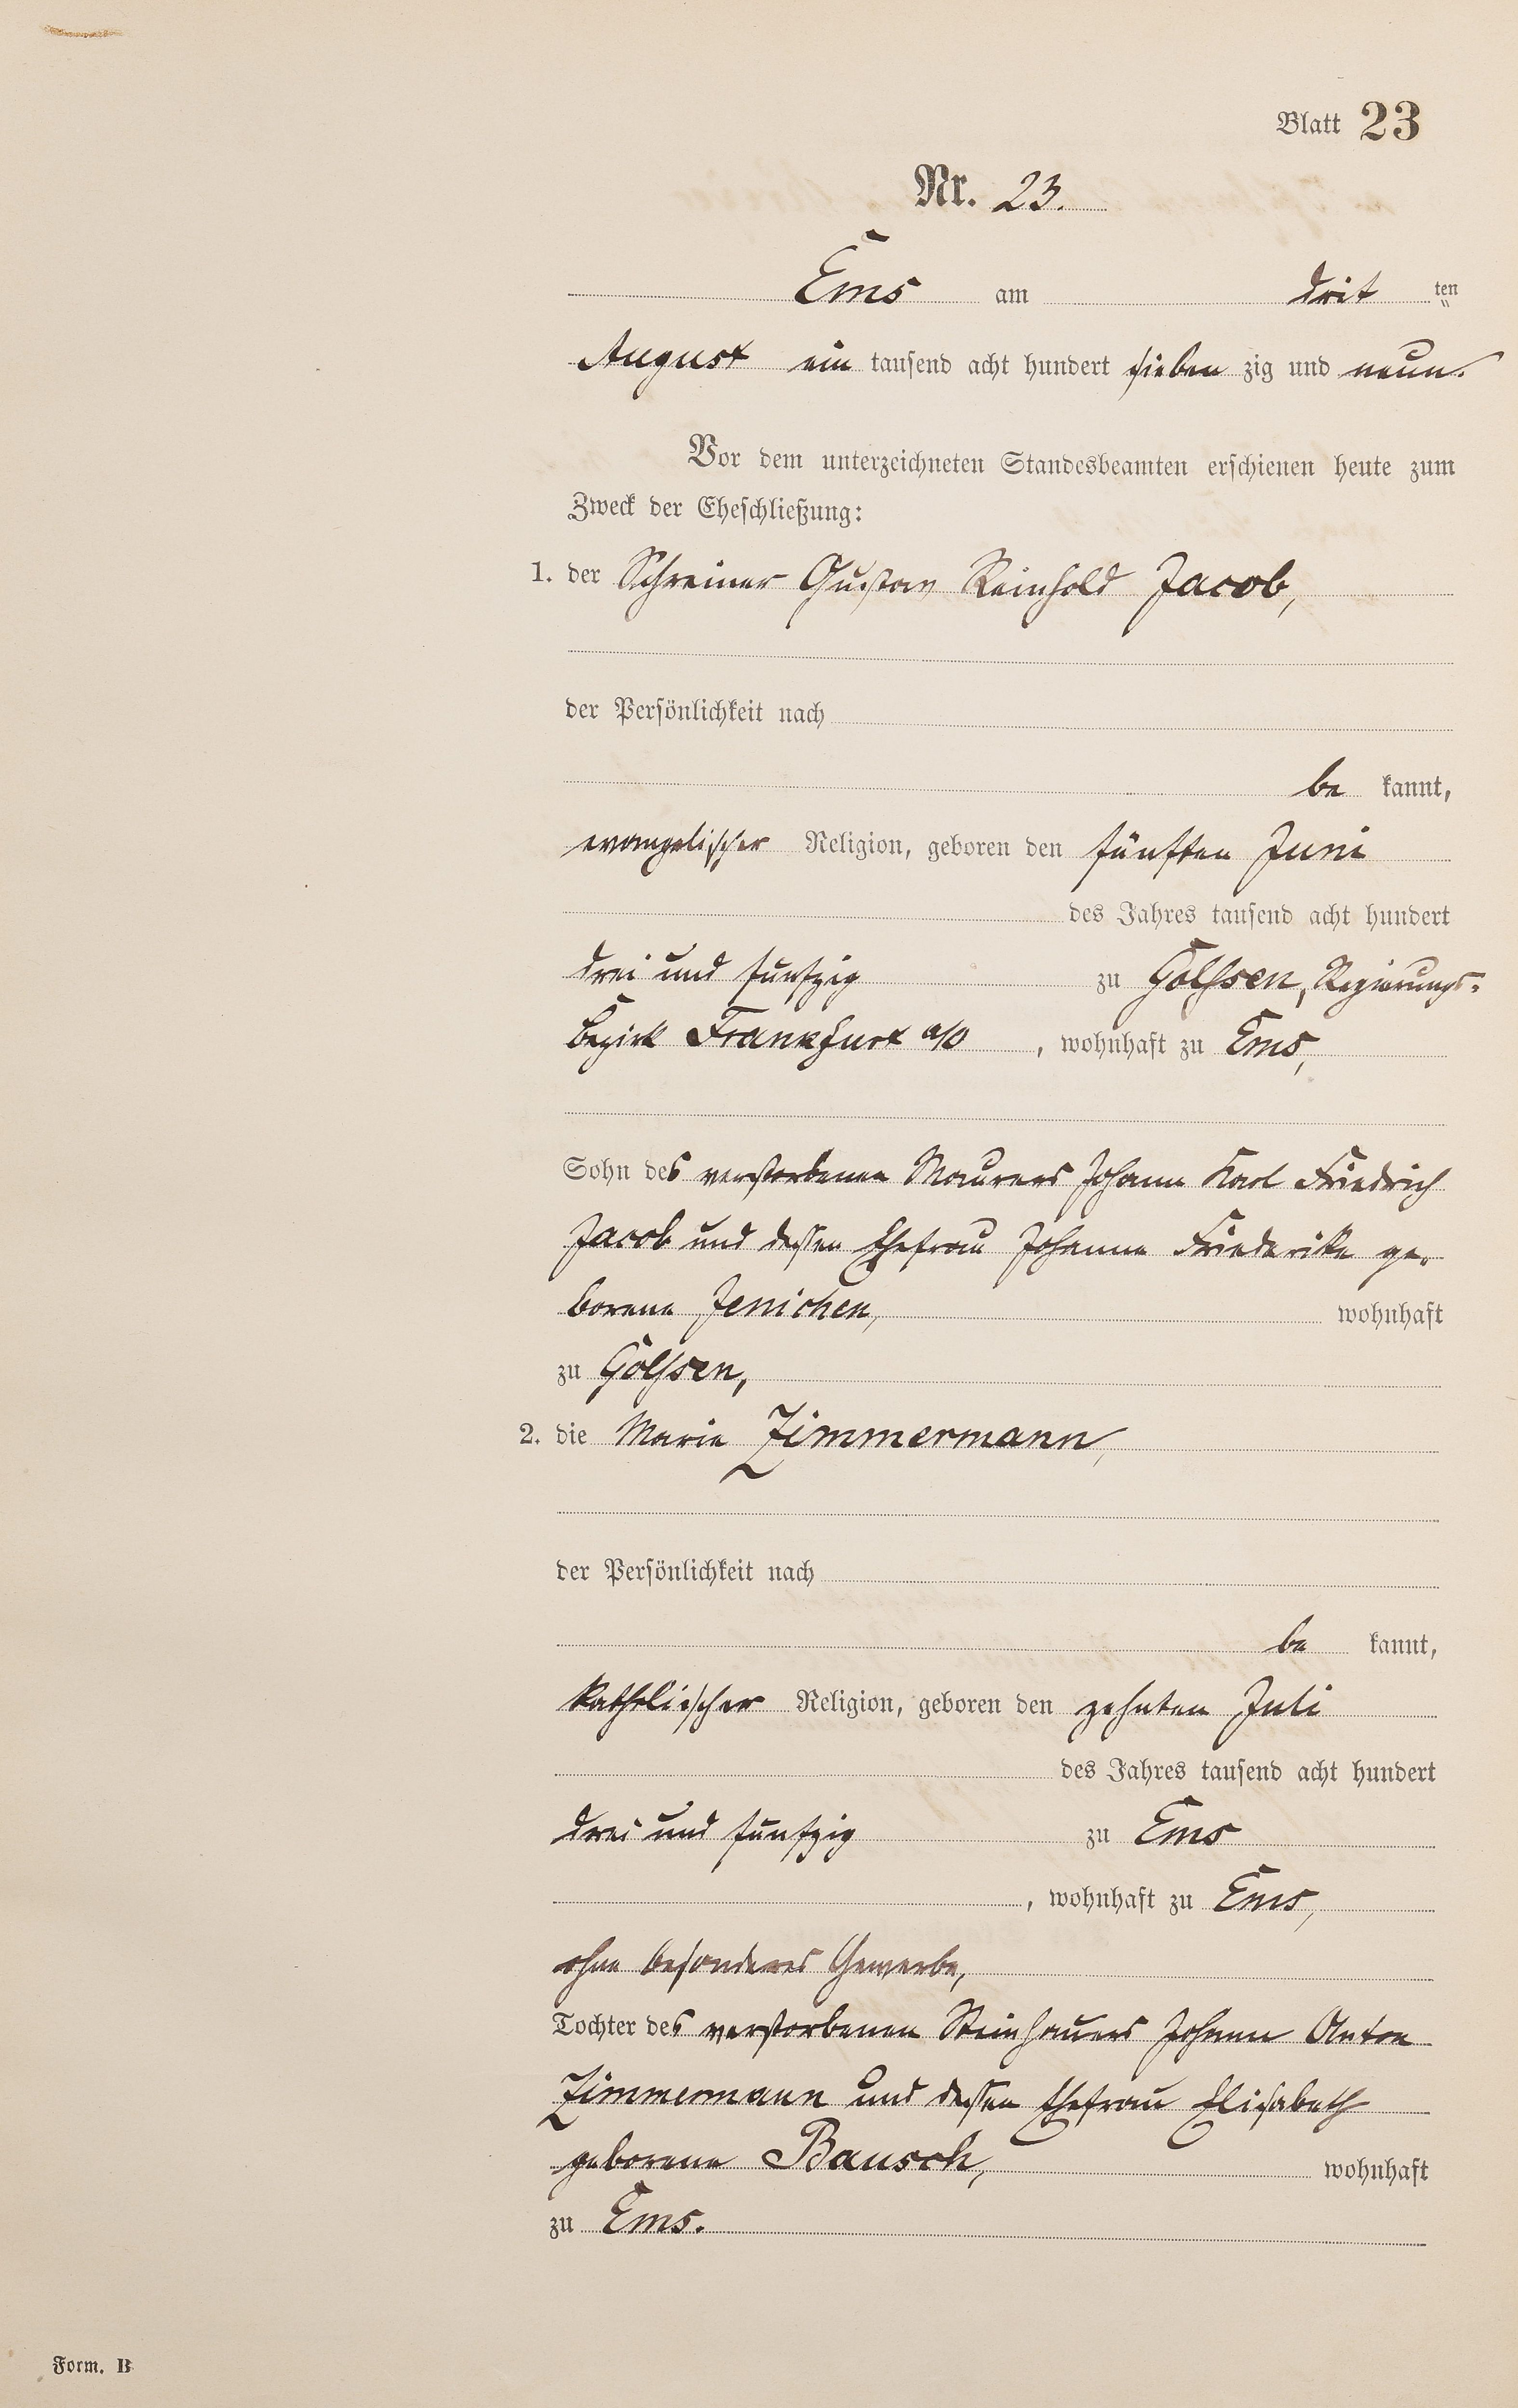 Blatt 23
Nr. 23.
Ems am drit ten
August ein tausend acht hundert sieben zig und neun.
Vor dem unterzeichneten Standesbeamten erschienen heute zum
Zweck der Eheschließung:
1. der Schreiner Gustav Reinhold Jacob,
der Persönlichkeit nach
be kannt,
evangelischer Religion, geboren den fünften Juni
des Jahres tausend acht hundert
drei und funfzig zu Golssen, Regierungs-
bezirk Frankfurt a/O , wohnhaft zu Ems,
Sohn des verstorbenen Maurers Johann Karl Friedrich
Jacob und dessen Ehefrau Johanne Friederike ge-
borene Jenichen, wohnhaft
zu Golssen,
2. die Marie Zimmermann,
der Persönlichkeit nach
be kannt,
katholischer Religion, geboren den zehnten Juli
des Jahres tausend acht hundert
drei und funfzig zu Ems
, wohnhaft zu Ems,
ohne besonderes Gewerbe,
Tochter des verstorbenen Steinhauers Johann Anton
Zimmermann und dessen Ehefrau Elisabeth
geborene Bausch, wohnhaft
zu Ems.
Form. B